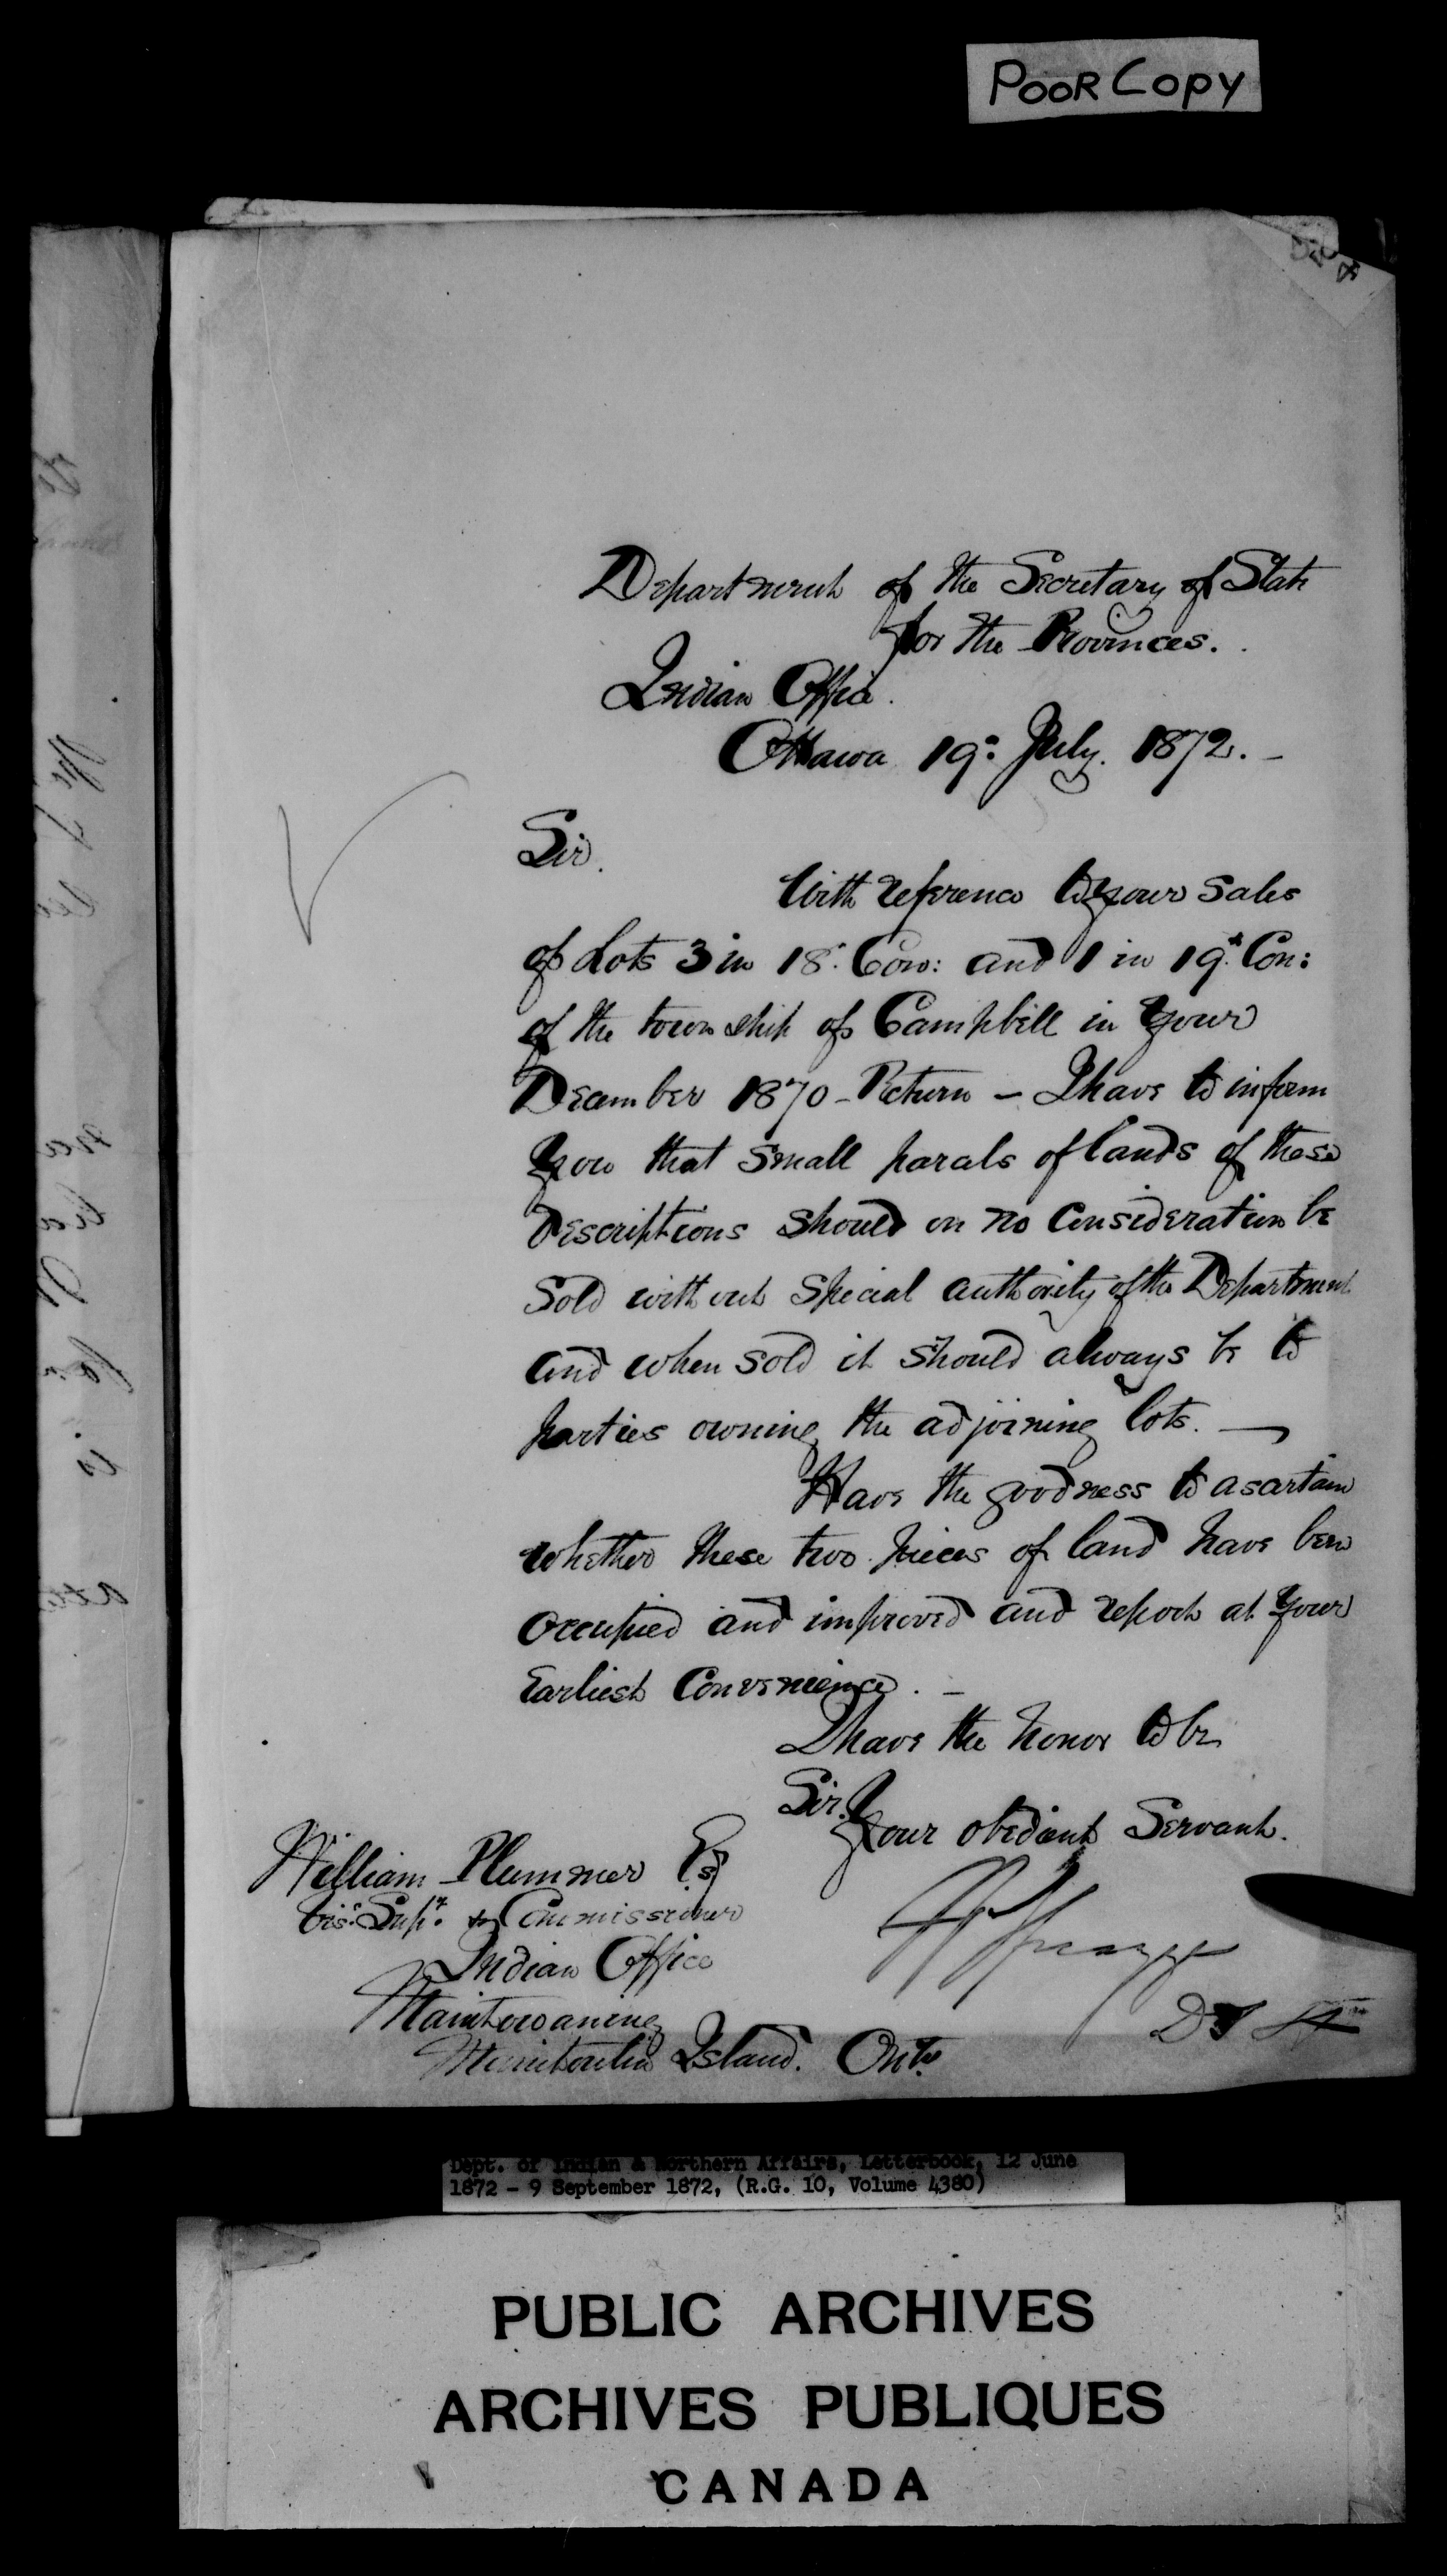 POOR COPY
Department of the Secretary of State
for the Provinces.
Indian Office.
Ottawa 19th July. 1872. -
Sir.
With reference to your Sales
of Lots 3 in 18. Con: and 1 in 19th Con:
of the township of Campbell in your
December 1870 - Return - I have to inform
you that small parcels of lands of these
descriptions should on no Consideration be
Sold without Special authority of the Department
and when sold it should always be to
parties owning the adjoining lots. -
Have the goodness to ascertain
whether these two pieces of land have been
occupied and improved and report at your
Earliest Convenience. -
I have the honor to be
Sir.
Your obedient Servant.
William Plummer Esq
Vis. Supt. & Commissioner
Indian Office
Manitowaning
Manitoulin Island. Onto.
Dept. of Indian & Northern Affairs, Letterbook, 12 June
1872 - 9 September 1872, (R.G. 10, Volume 4380)
PUBLIC ARCHIVES
ARCHIVES PUBLIQUES
CANADA